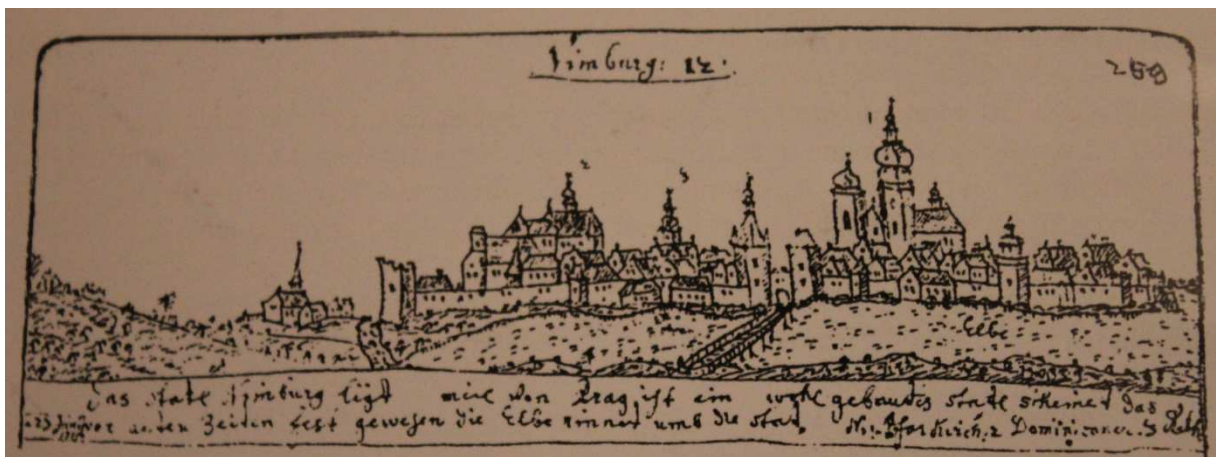 Nimburg: 12.
259
2
3
1
Elbe
Das statl Nimburg ligt meil von Prag ist ein wohl gebautes statl scheinet das
vor alten Zeiten fest gewesen die Elbe rinnet umb die stat. Pfarkirch. 2 Dominicaner. 3 Rath